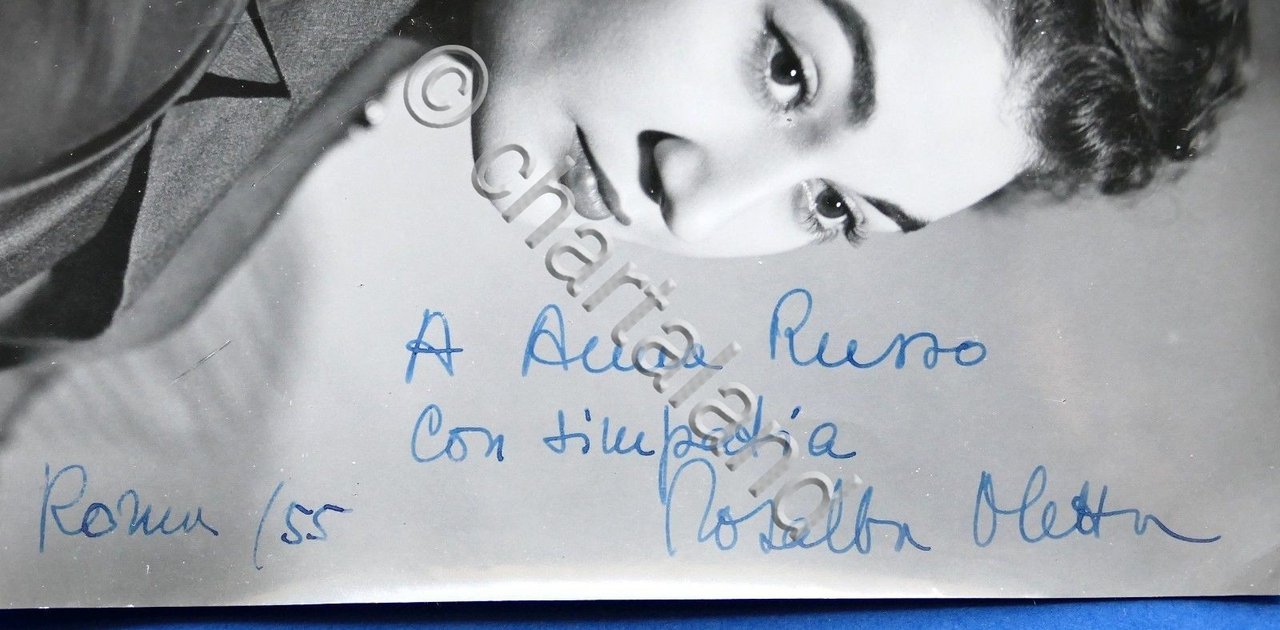 © chartaland
A Anna Russo
Con simpatia
Rosalba Oletta
Roma /55